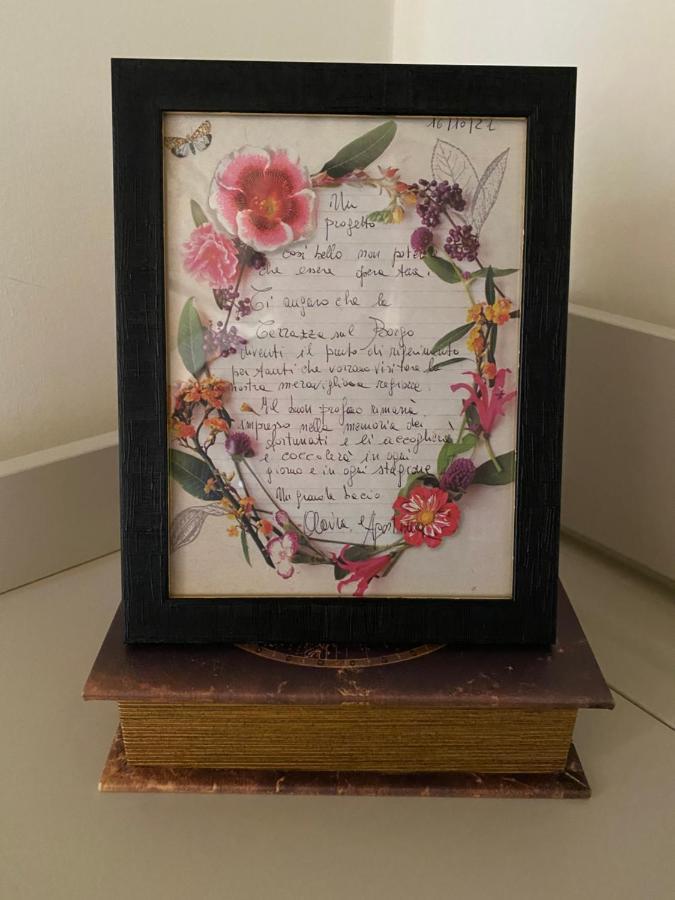 16/10/21
Un
progetto
così bello non poteva
che essere opera tua.
Ti auguro che la
Terrazza sul Borgo
diventi il punto di riferimento
per tanti che vorranno visitare la
nostra meravigliosa regione.
Al buon profumo rimarrà
impresso nella memoria dei
fortunati e li accoglierà
e coccolerà in ogni
giorno e in ogni stagione
Un grande bacio